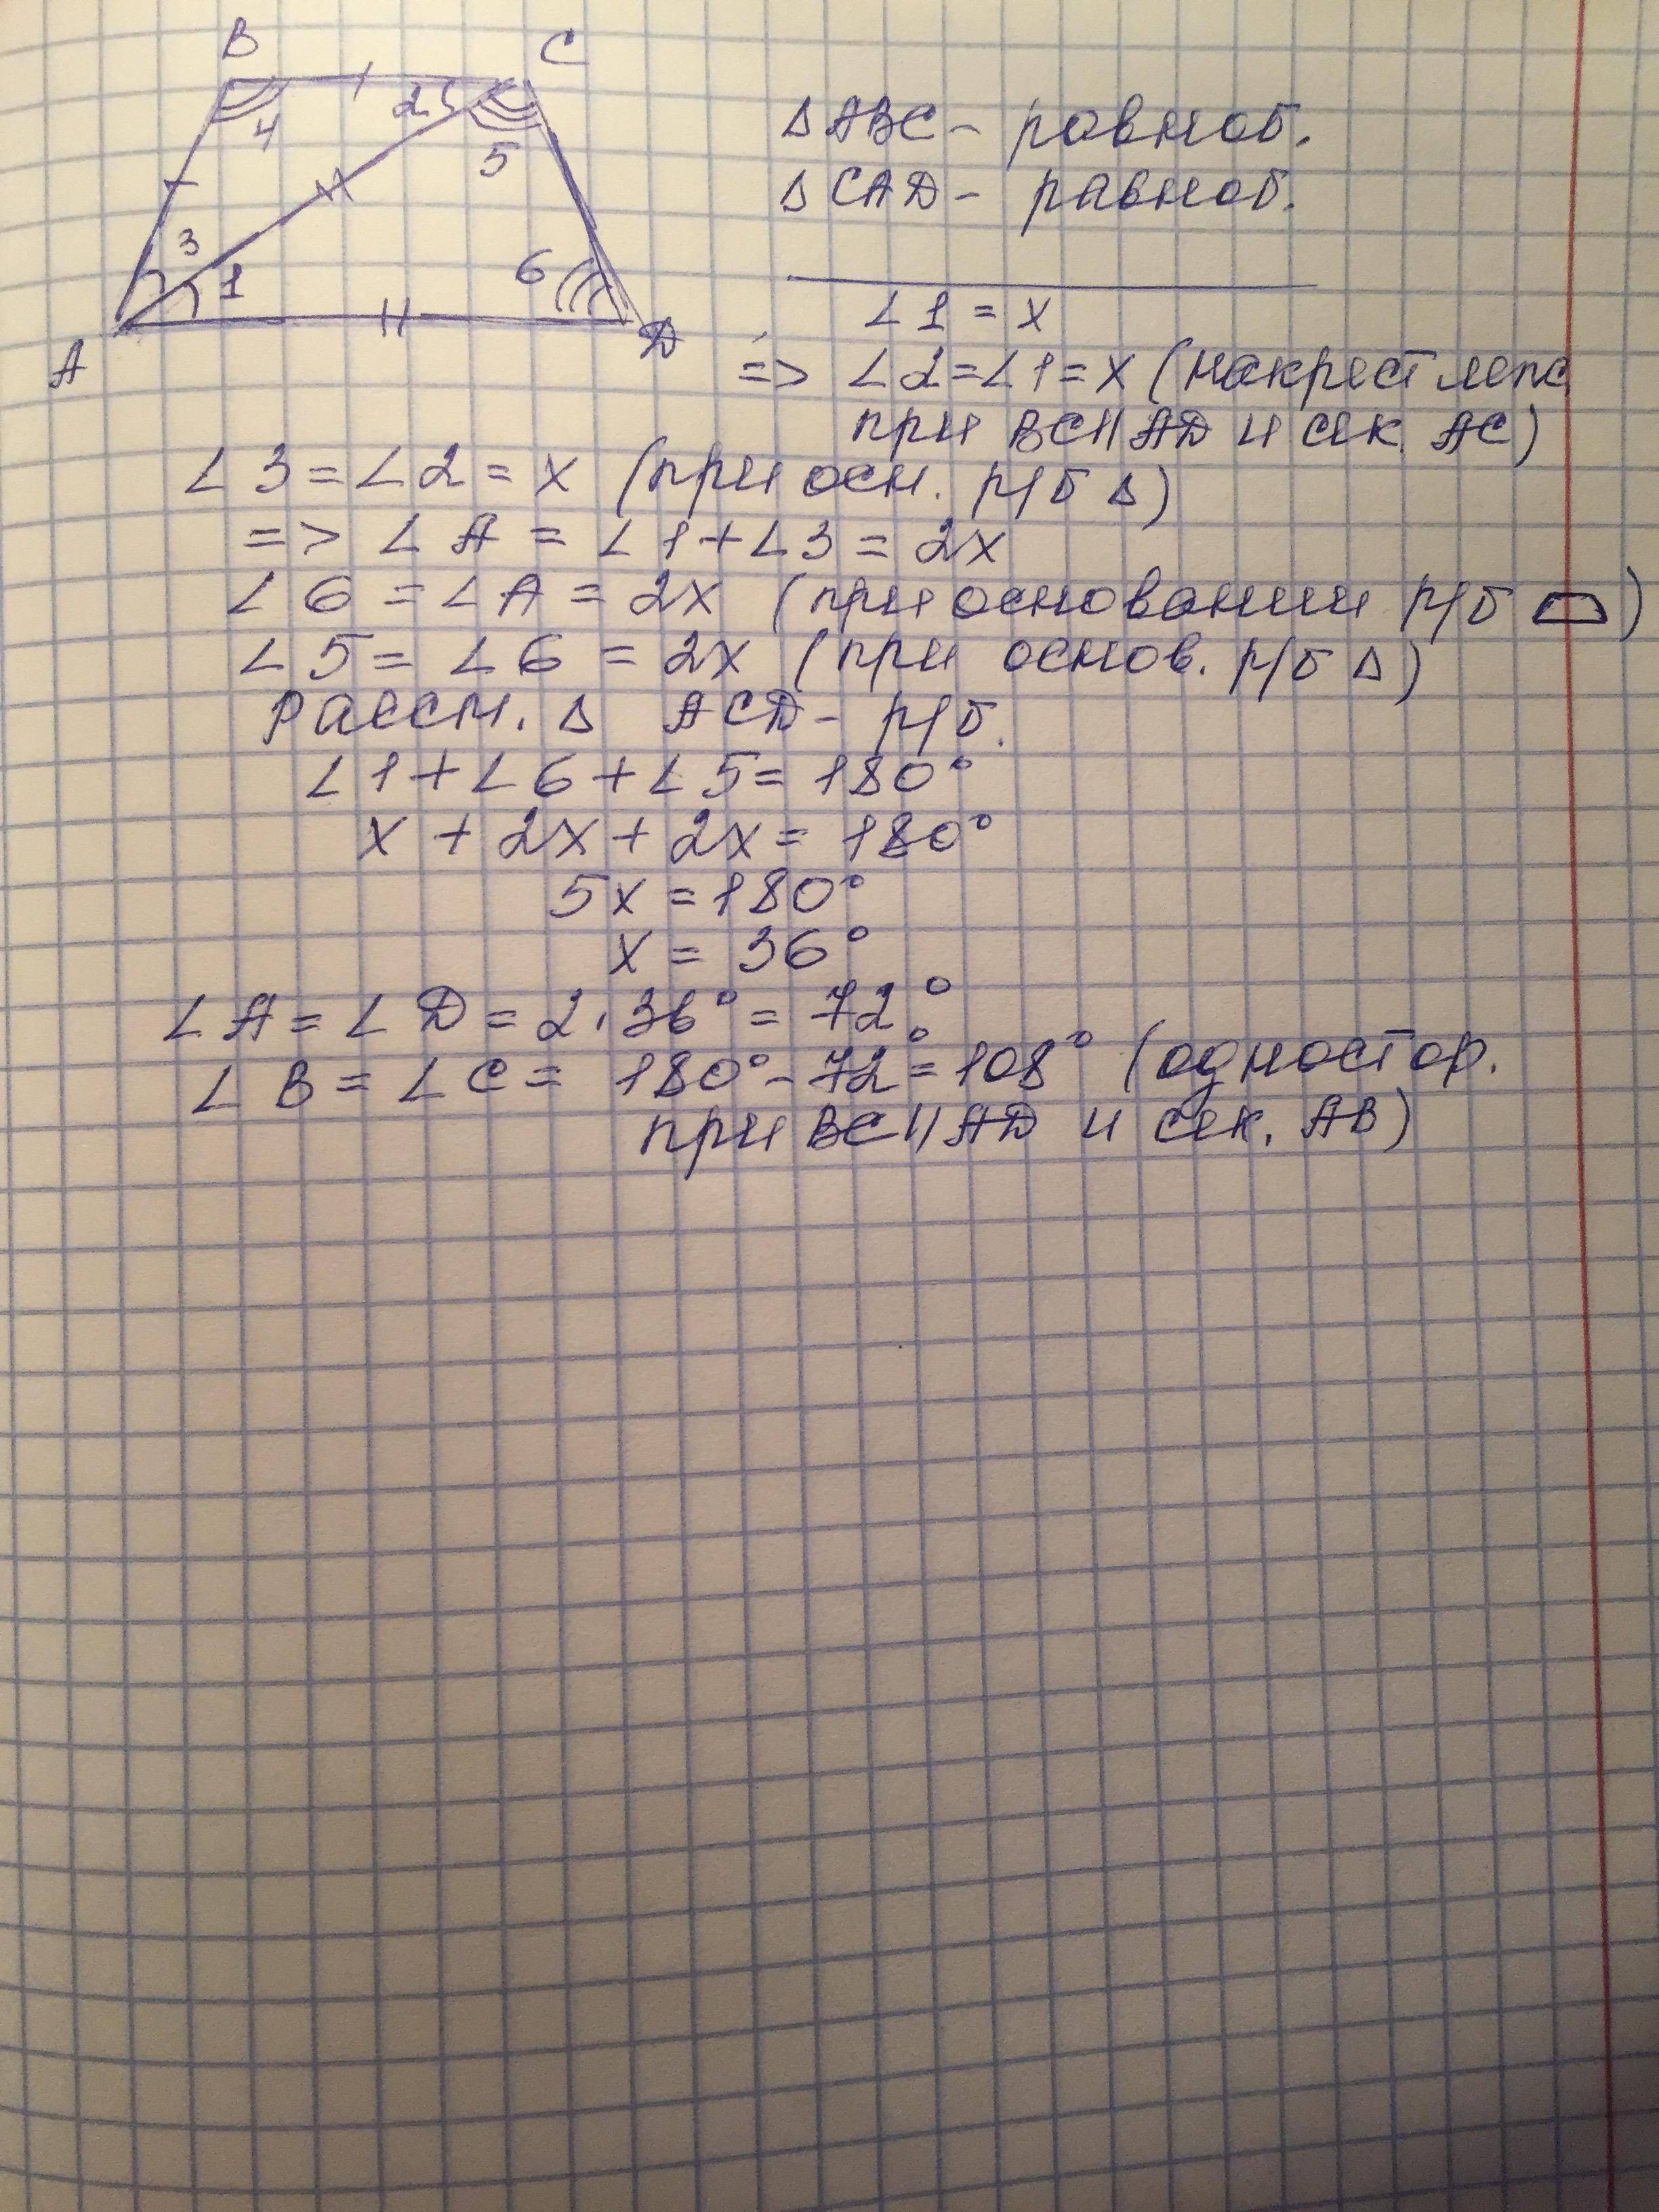 B C
4 2 5
3 1 6
A D
Δ ABC - равноб.
Δ CAD - равноб.
∠1 = x
=> ∠2=∠1=x (накрест леж
при BC||AD и сек. AC)
∠3=∠2=x (при осн. р/б Δ)
=> ∠A = ∠1+∠3=2x
∠6=∠A=2x (при основании р/б ⏢)
∠5=∠6=2x (при основ. р/б Δ)
Рассм. Δ ACD - р/б.
∠1+∠6+∠5=180°
x+2x+2x=180°
5x=180°
x=36°
∠A=∠D=2·36°=72°
∠B=∠C=180°-72°=108° (одностор.
при BC||AD и сек. AB)